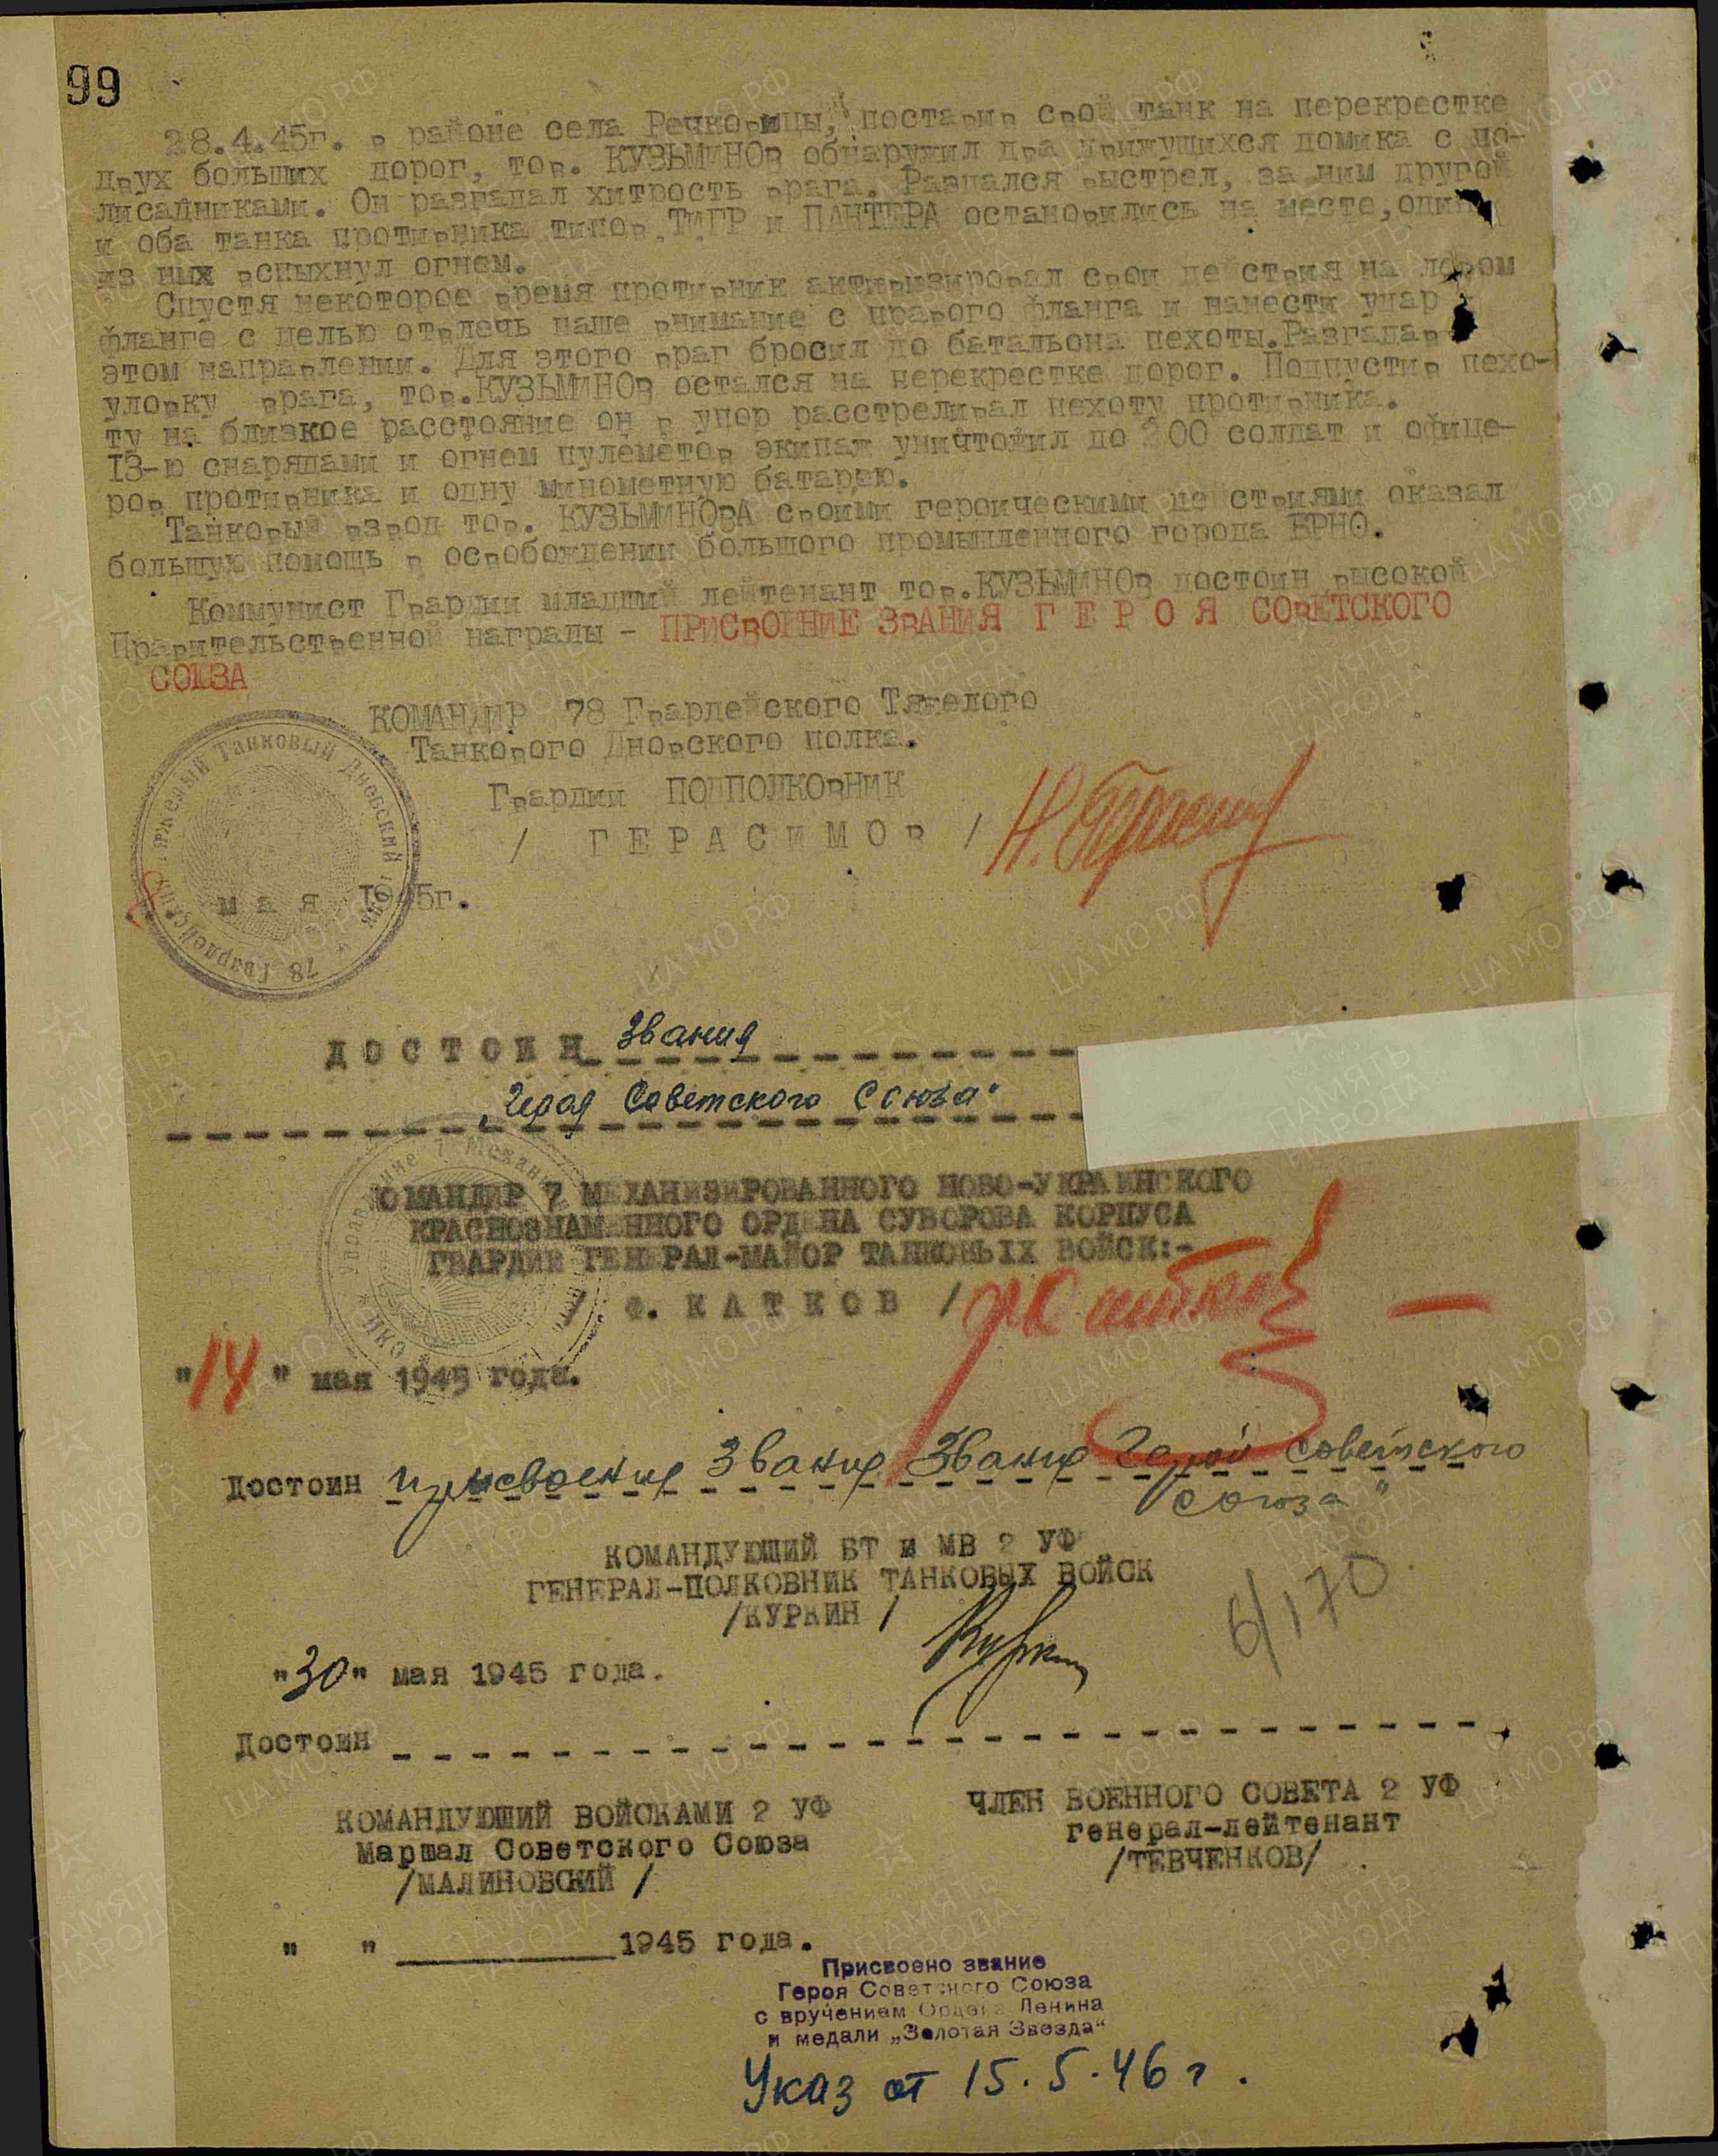 99
28.4.45г. в районе села Речковицы, поставив свой танк на перекрестке
двух больших дорог, тов. КУЗЬМИНОв обнаружил два движущихся домика с по-
лисадниками. Он разгадал хитрость врага. Раздался выстрел, за ним другой
и оба танка противника типов ТИГР и ПАНТЕРА остановились на месте, один
из них вспыхнул огнем.
Спустя некоторое время противник активизировал свои действия на левом
фланге с целью отвлечь наше внимание с правого фланга и нанести удар в
этом направлении. Для этого враг бросил до батальона пехоты. Разгадав
уловку врага, тов. КУЗЬМИНОв остался на перекрестке дорог. Подпустив пехо-
ту на близкое расстояние он в упор расстреливал пехоту противника.
13-ю снарядами и огнем пулеметов экипаж уничтожил до 200 солдат и офице-
ров противника и одну минометную батарею.
Танковый взвод тов. КУЗЬМИНОвА своими героическими действиями оказал
большую помощь в освобождении большого промышленного города БРНО.
Коммунист Гвардии младший лейтенант тов. КУЗЬМИНОв достоин высокой
Правительственной награды - ПРИСвОЕНИЕ ЗвАНИЯ Г Е Р О Я СОвЕТСКОГО
СОЮЗА
КОМАНДИР 78 Гвардейского Тяжелого
Танкового Дновского полка.
Гвардии ПОДПОЛКОвНИК
/ Г Е Р А С И М О в /
м а я 1945г.
Д О С Т О И Н звания
"Героя Советского Союза"
КОМАНДИР 7 МЕХАНИЗИРОВАННОГО НОВО-УКРАИНСКОГО
КРАСНОЗНАМЕННОГО ОРДЕНА СУВОРОВА КОРПУСА
ГВАРДИИ ГЕНЕРАЛ-МАЙОР ТАНКОВЫХ ВОЙСК:-
/ Ф. К А Т К О В /
"14" мая 1945 года.
Достоин присвоения звания звания Герой Советского
Союза"
КОМАНДУЮЩИЙ БТ и МВ 2 УФ
ГЕНЕРАЛ-ПОЛКОВНИК ТАНКОВЫХ ВОЙСК
/КУРКИН /
6/170
"30" мая 1945 года.
Достоин
КОМАНДУЮЩИЙ ВОЙСКАМИ 2 УФ
Маршал Советского Союза
/МАЛИНОВСКИЙ /
ЧЛЕН ВОЕННОГО СОВЕТА 2 УФ
генерал-лейтенант
/ТЕВЧЕНКОВ/
" " 1945 года.
Присвоено звание
Героя Советского Союза
с вручением Ордена Ленина
и медали „Золотая Звезда"
Указ от 15.5.46 г.